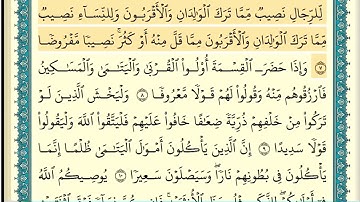 لِّلرِّجَالِ نَصِيبٌ مِّمَّا تَرَكَ الْوَالِدَانِ وَالْأَقْرَبُونَ وَلِلنِّسَاءِ نَصِيبٌ
مِّمَّا تَرَكَ الْوَالِدَانِ وَالْأَقْرَبُونَ مِمَّا قَلَّ مِنْهُ أَوْ كَثُرَ نَصِيبًا مَّفْرُوضًا
٧ وَإِذَا حَضَرَ الْقِسْمَةَ أُوْلُواْ الْقُرْبَىٰ وَالْيَتَامَىٰ وَالْمَسَاكِينُ
فَارْزُقُوهُم مِّنْهُ وَقُولُواْ لَهُمْ قَوْلًا مَّعْرُوفًا ٨ وَلْيَخْشَ الَّذِينَ لَوْ
تَرَكُواْ مِنْ خَلْفِهِمْ ذُرِّيَّةً ضِعَافًا خَافُواْ عَلَيْهِمْ فَلْيَتَّقُواْ اللَّهَ وَلْيَقُولُواْ
قَوْلًا سَدِيدًا ٩ إِنَّ الَّذِينَ يَأْكُلُونَ أَمْوَالَ الْيَتَامَىٰ ظُلْمًا إِنَّمَا
يَأْكُلُونَ فِي بُطُونِهِمْ نَارًا وَسَيَصْلَوْنَ سَعِيرًا ١٠ يُوصِيكُمُ اللَّهُ